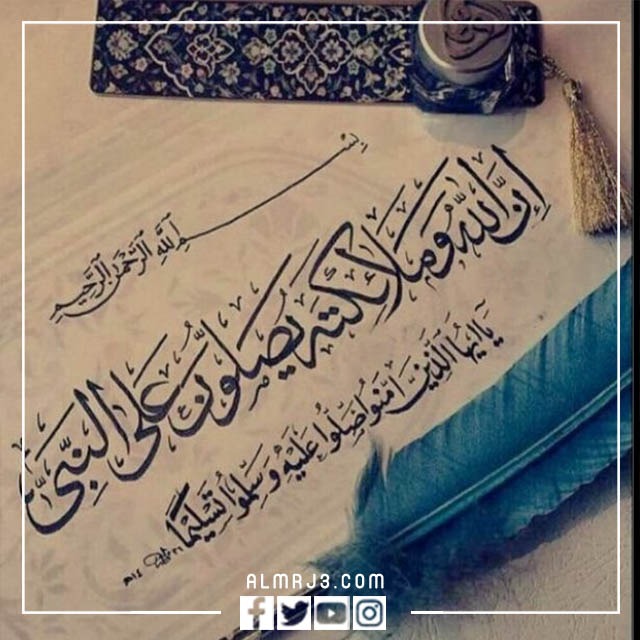 بسم الله الرحمن الرحيم
إن الله وملائكته يصلون على النبي
يا أيها الذين آمنوا صلوا عليه وسلموا تسليما
ALMRJ3.COM